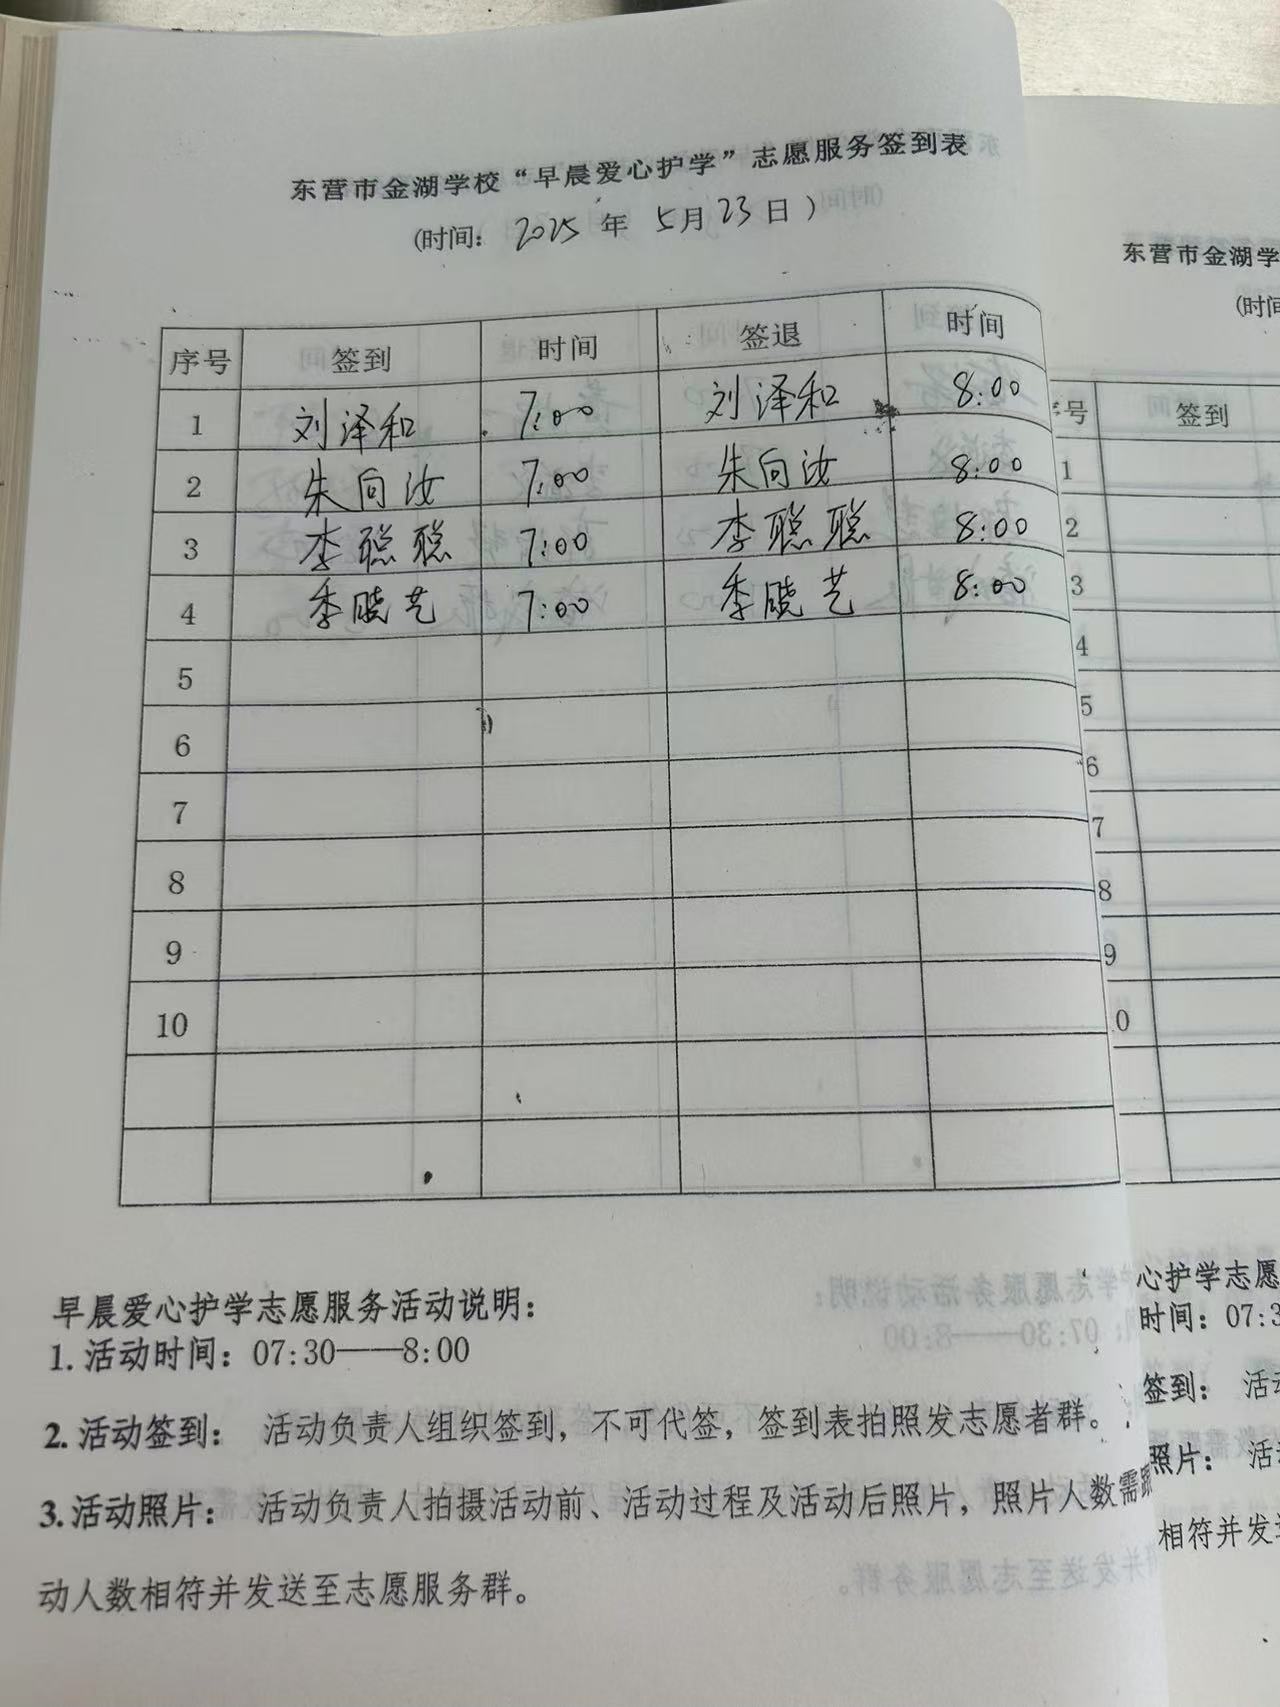 东营市金湖学校“早晨爱心护学”志愿服务签到表
(时间: 2025 年 5月23日)
序号 签到 时间 签退 时间
1 刘泽和 7:00 刘泽和 8:00
2 朱向汝 7:00 朱向汝 8:00
3 李聪聪 7:00 李聪聪 8:00
4 季晓艺 7:00 季晓艺 8:00
5
6
7
8
9
10
早晨爱心护学志愿服务活动说明:
1. 活动时间: 07:30——8:00
2. 活动签到: 活动负责人组织签到, 不可代签, 签到表拍照发志愿者群。
3. 活动照片: 活动负责人拍摄活动前、活动过程及活动后照片, 照片人数需跟
动人数相符并发送至志愿服务群。
东营市金湖学
(时间
号 签到
1
2
3
4
5
6
7
8
9
0
心护学志愿
时间: 07:3
签到: 活
照片: 活
相符并发